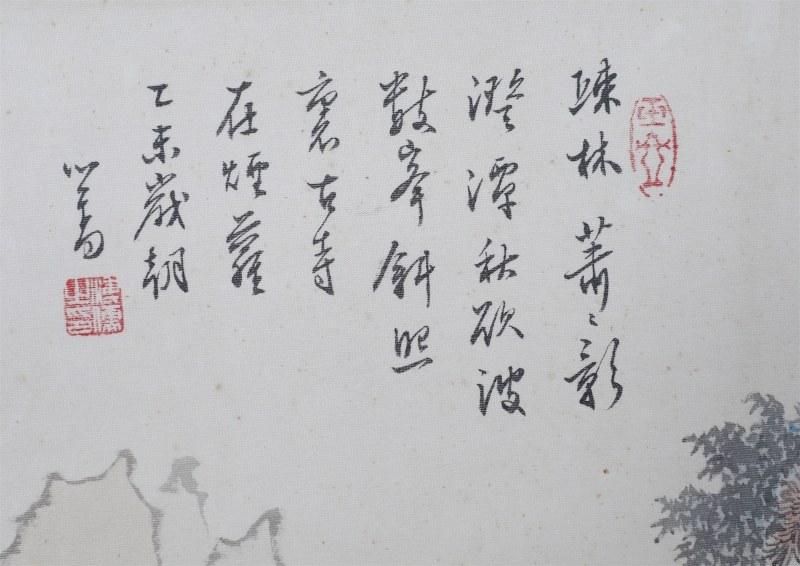 疎林蕭〻影
澄潭秋欲波
數峯斜照
裏古寺
在煙蘿
乙未歲朝
心畬
溥儒
之印